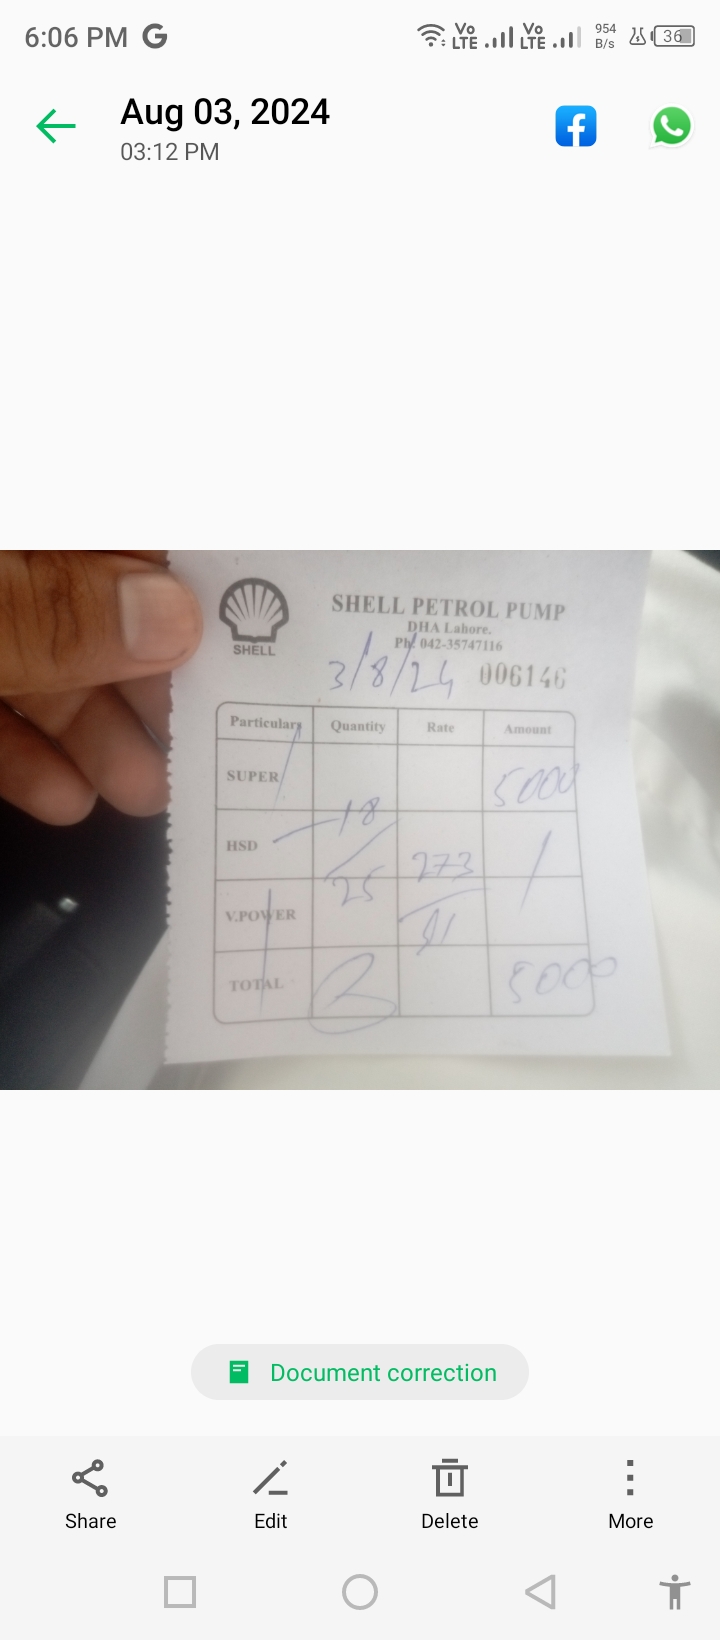 6:06 PM G Vo LTE Vo LTE 954 B/s 36
Aug 03, 2024
03:12 PM
SHELL
SHELL PETROL PUMP
DHA Lahore.
Ph: 042-35747116
3/8/24 006146
Particulars Quantity Rate Amount
SUPER 5000
18
HSD 273
25
V.POWER 91
TOTAL 5000
Document correction
Share Edit Delete More